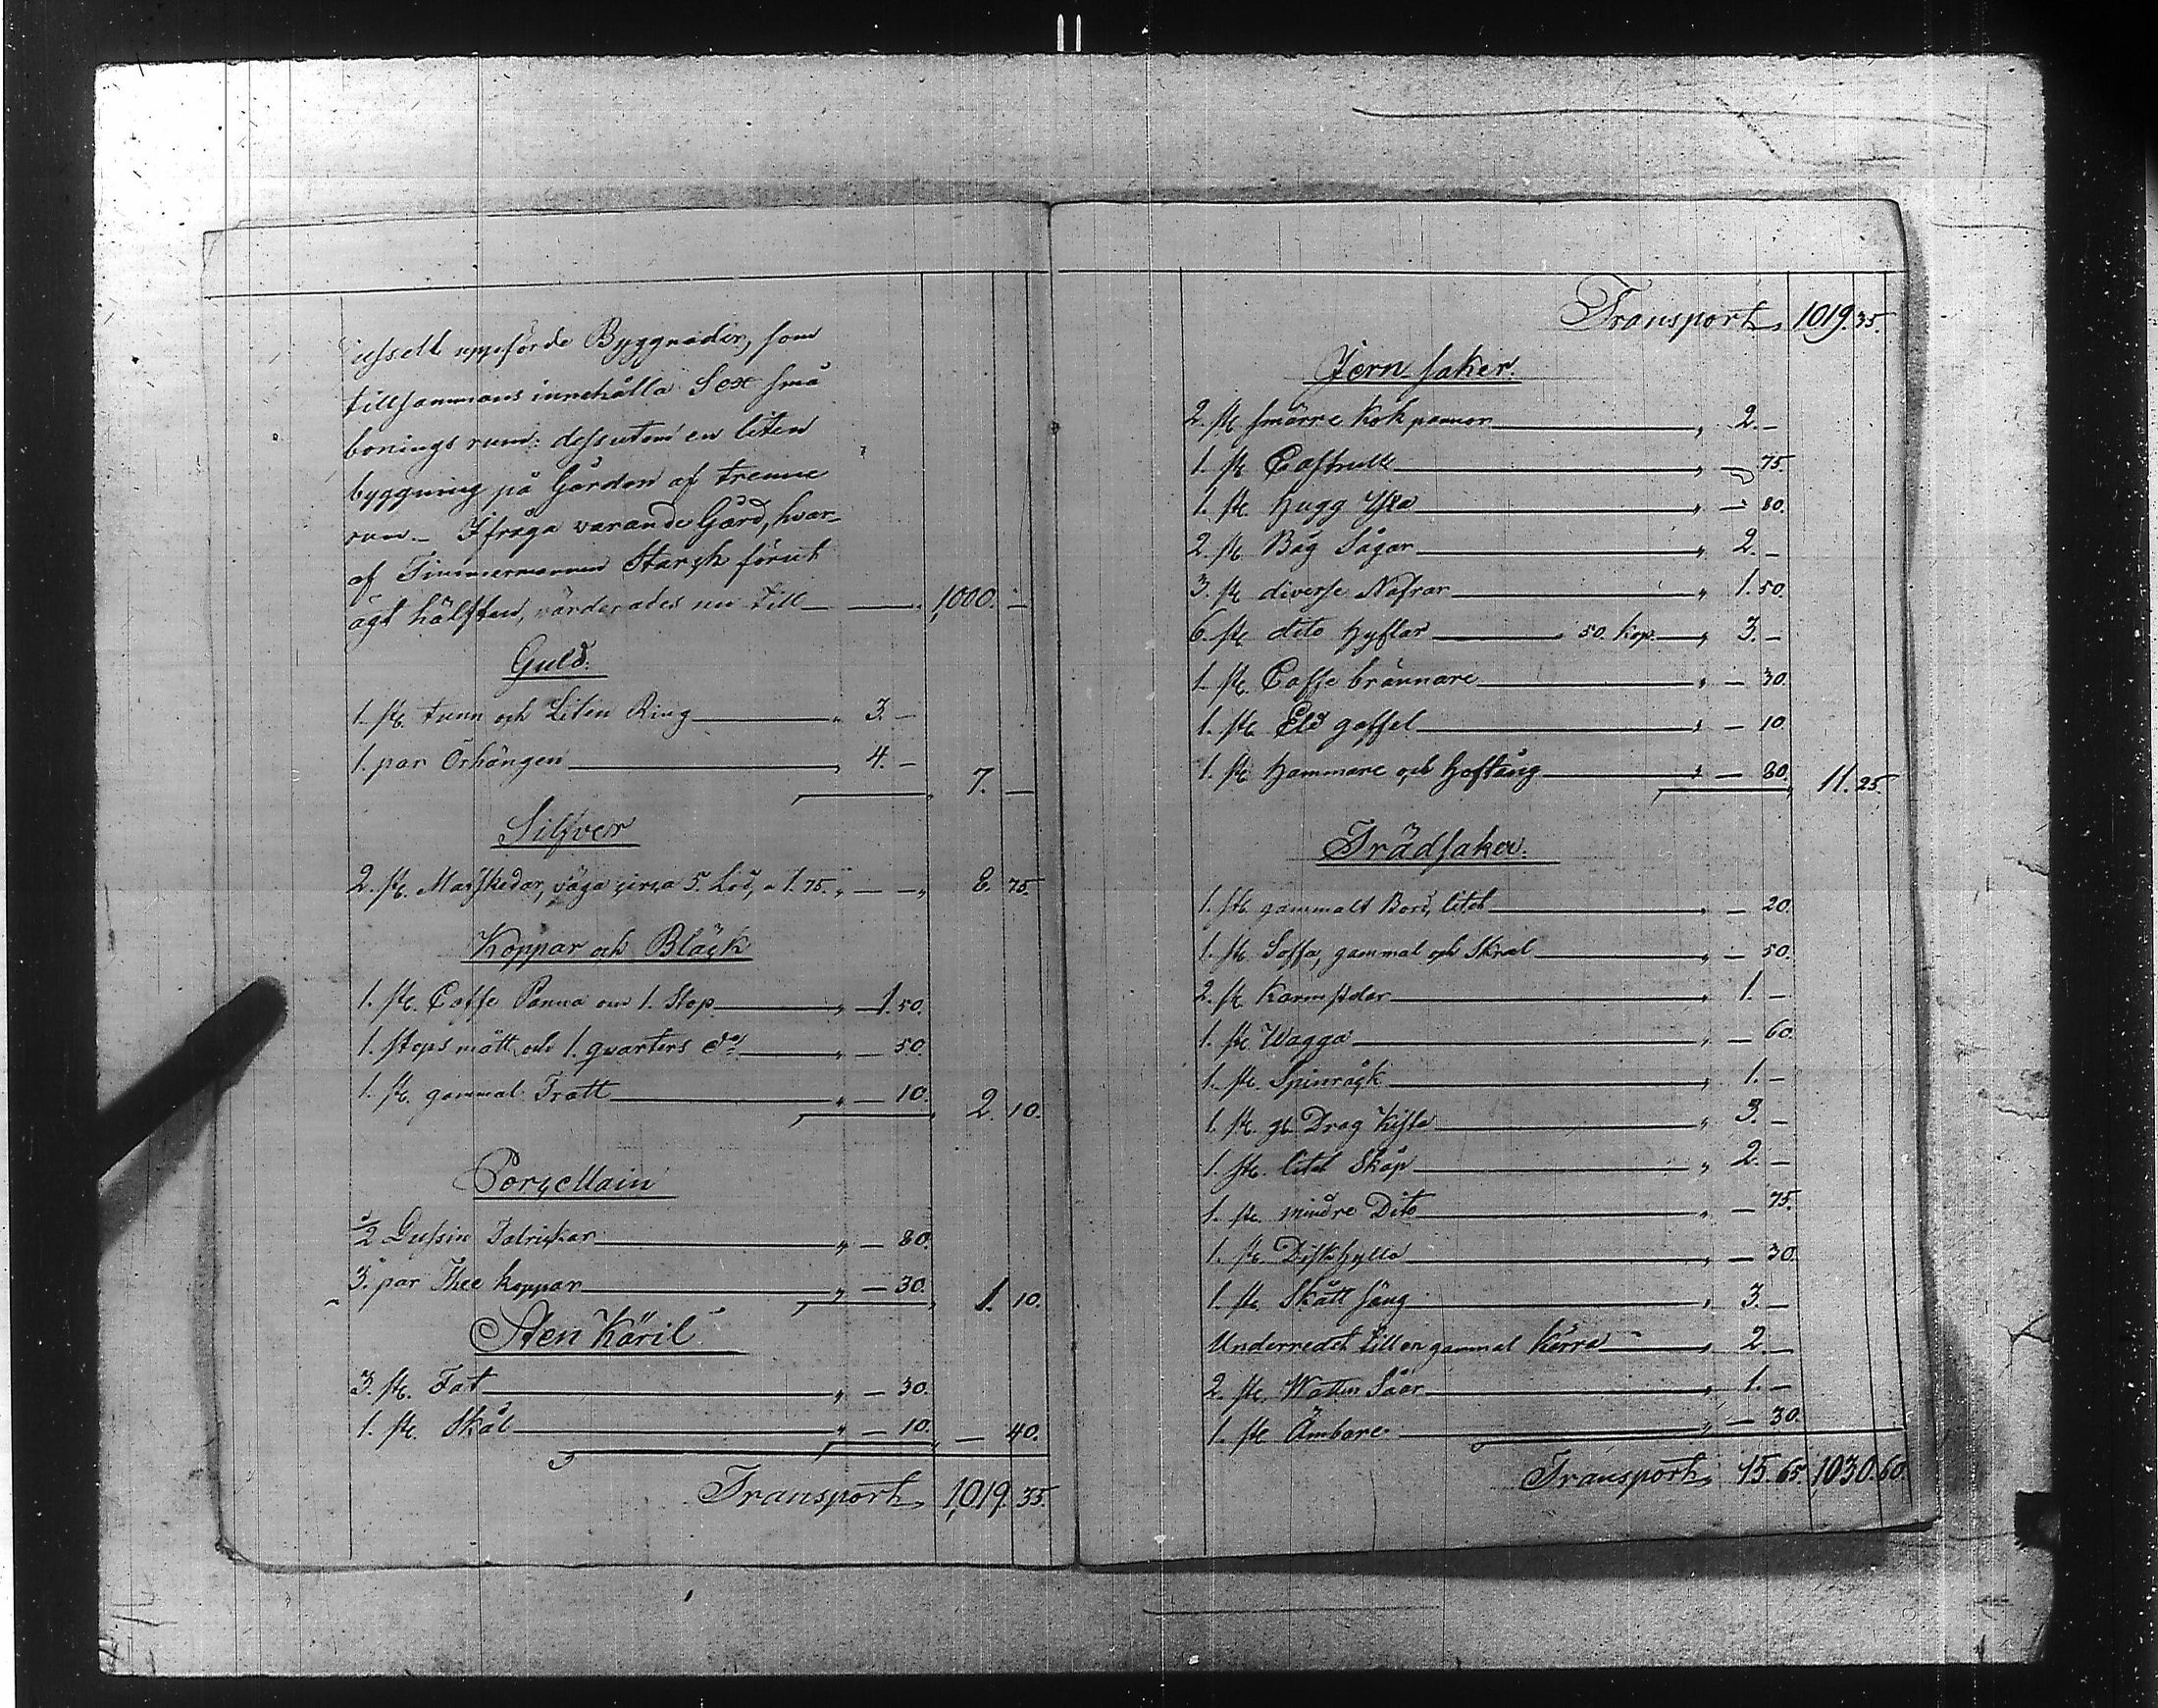 uppförde Byggnader, som
tillsammans innehålla Sex små
bonings rum: dessutom en liten
byggning på Gården af trenne
rum. - Ifråga varande Gård, hvar-
af Timmermannen Starck förut
ägt hälften, värderades nu till — — 1,000. —
Guld.
1. st. tunn och Liten Ring — " 3. —
1. par Örhängen — " 4. — 7. —
Silfver
2. st. Matskedar, väga circa 5. Lod, a 1.75. " — — " 8. 75.
Koppar och Bläck
1. st. Caffe Panna om 1. Stop — " — 1.50.
1. stops mått och 1. quarters do — " — 50.
1. st. gammal Tratt — " — 10. 2. 10.
Porcellain
1/2 Dussin Talrickar — " — 80.
3. par Thee koppar — " — 30. 1. 10.
Sten Käril
3. st. Fat — " — 30.
1. st. Skål — " — 10. — 40.
Transport, 1,019. 35.
Transport, 1019. 35.
Jern saker.
2. st. smärre Kok pannor — " 2. —
1. st. Castrull — " — 75.
1. st. Hugg Yxa — " — 80.
2. st. Båg Sågar — " 2. —
3. st. diverse Nafrar — " 1.50.
6. st. dito Hyflar — 50. kop. — " 3. —
1. st. Caffe brännare — " — 30.
1. st. Eld gaffel — " — 10.
1. st. Hammare och Hoftång — " — 80. 11. 25.
Trädsaker.
1. st. gammalt Bord, litet — " — 20.
1. st. Soffa, gammal och Skral — " — 50.
2. st. Karmstolar — " 1. —
1. st. Wagga — " — 60.
1. st. Spinråck — " 1. —
1. st. gl. Drag Kista — " 3. —
1. st. litet Skåp — " 2. —
1. st. mindre Dito — " — 75.
1. st. Diskhylla — " — 30.
1. st. Skått säng — " 3. —
Underredet till en gammal Kärra — " 2. —
2. st. Watten Såar — " 1. —
1. st. Ämbare — " — 30.
Transport, 15. 65. 1,030. 60.